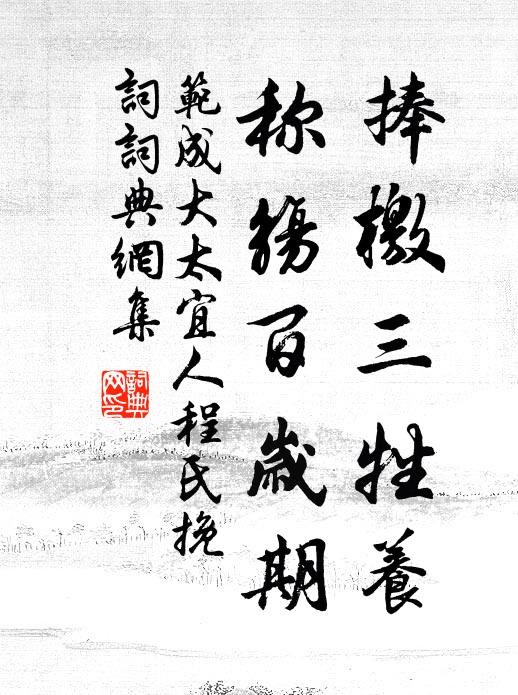 捧檄三牲養
称觴百歲期
範成大太宜人程氏挽
詞詞典網集
詞典網印